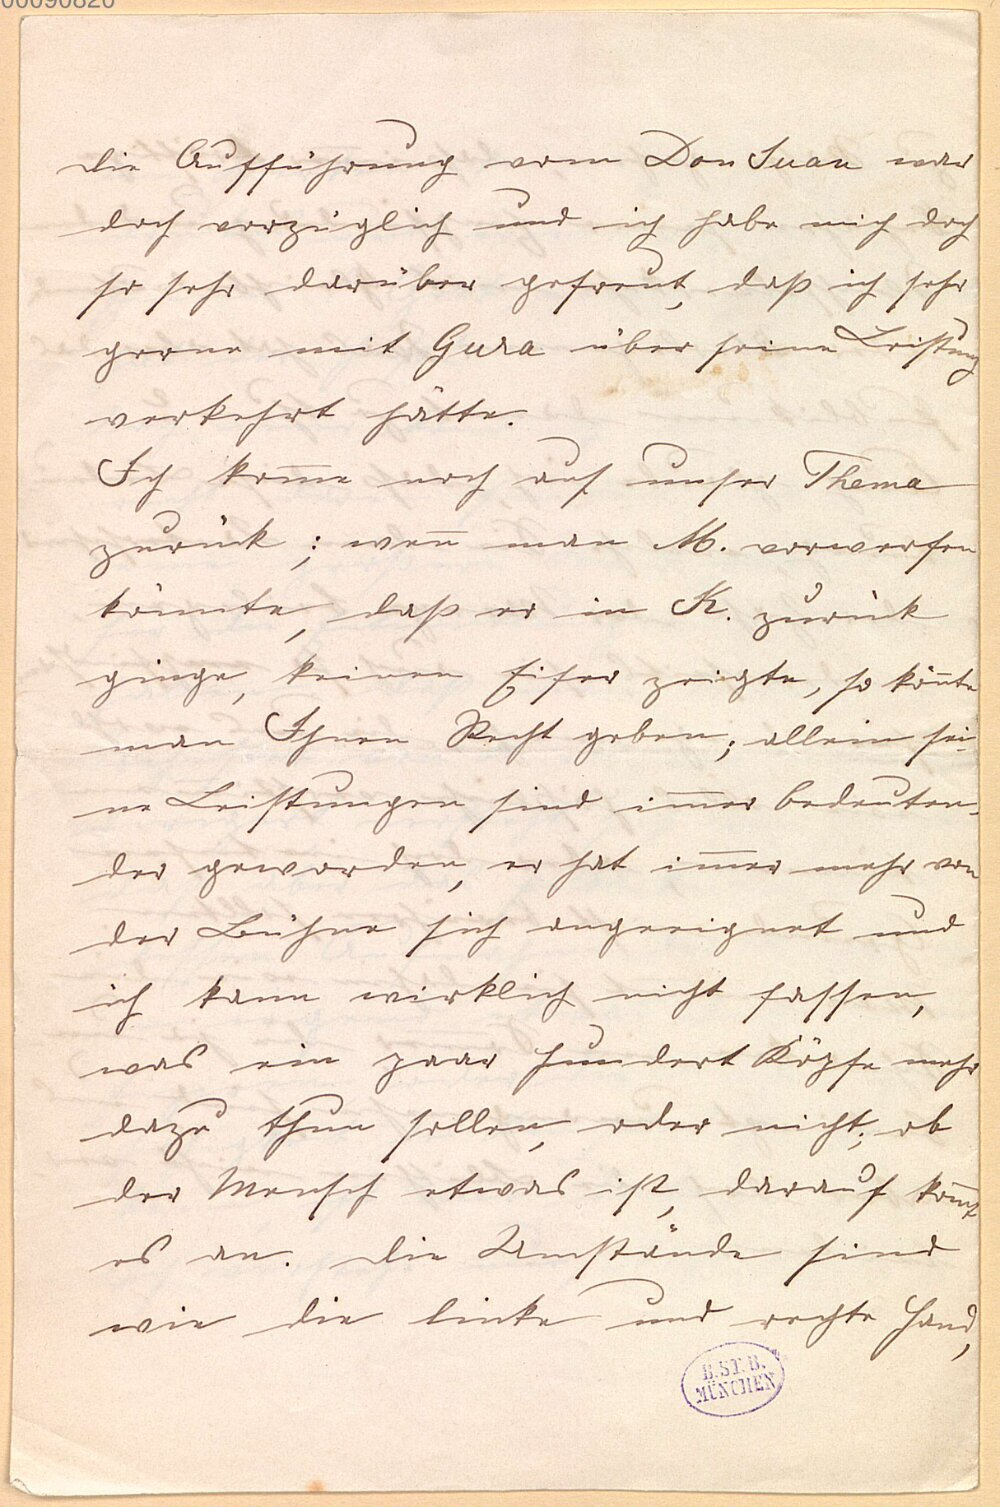 00090820
die Aufführung vom Don Juan war
doch vorzüglich und ich habe mich doch
so sehr darüber gefreut, daß ich sehr
gerne mit Gura über seine Leistung
verkehrt hätte.
Ich kom̅e noch auf unser Thema
zurück; wen̅ man M. vorwerfen
könnte, daß er in K. zurück
ginge, keinen Eifer zeigte, so kön̅te
man Ihnen Recht geben; allein sei-
ne Leistungen sind im̅er bedeuten-
der geworden, er hat im̅er mehr von
der Bühne sich angeeignet und
ich kann wirklich nicht fassen,
was ein paar hundert Köpfe mehr
dazu thun sollen, oder nicht; ob
der Mensch etwas ist, darauf kom̅t
es an. Die Umstände sind
wie die linke und rechte Hand,
B.ST.B.
MÜNCHEN